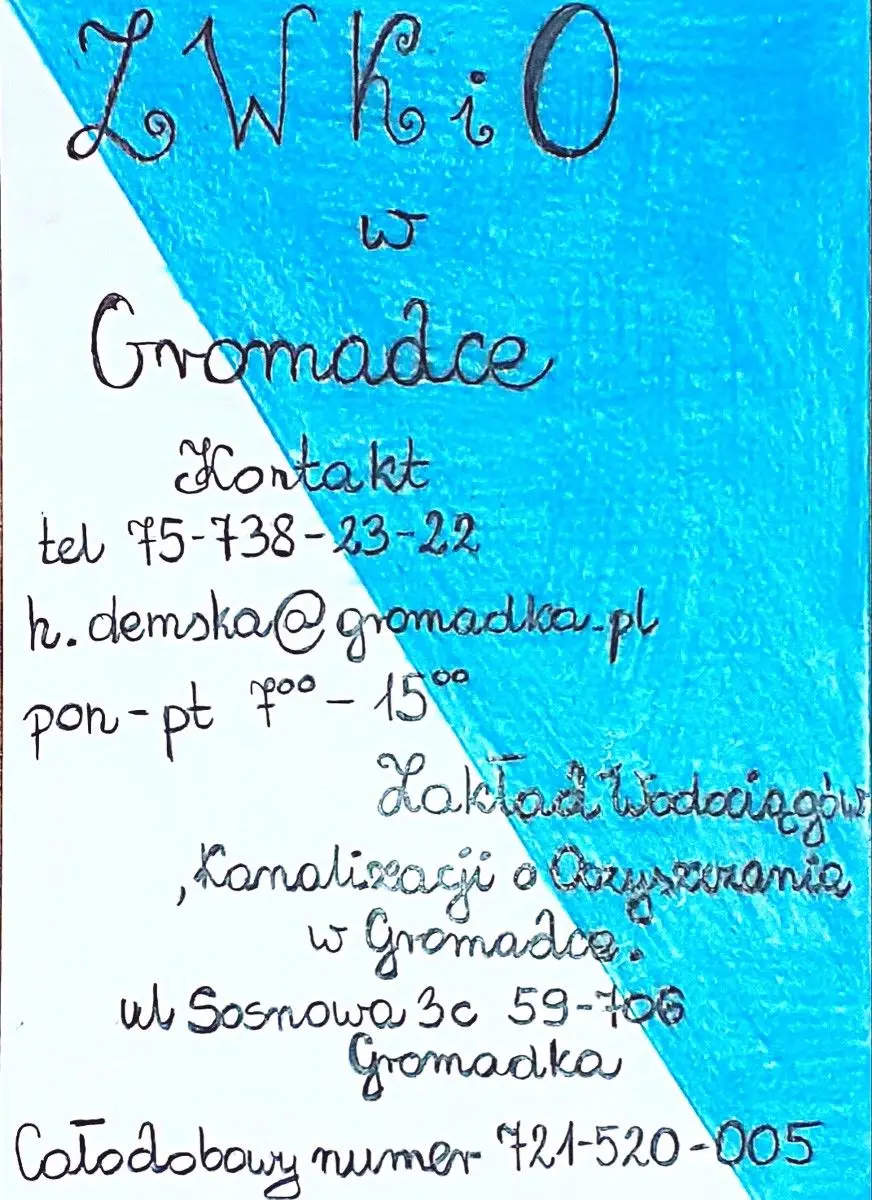 ZWKiO
w
Gromadce
Kontakt
tel 75-738-23-22
h.demska@gromadka.pl
pon-pt 7⁰⁰-15⁰⁰
Zakład Wodociągów
,Kanalizacji o Oczyszczania
w Gromadce.
ul Sosnowa 3c 59-706
Gromadka
Całodobowy numer 721-520-005